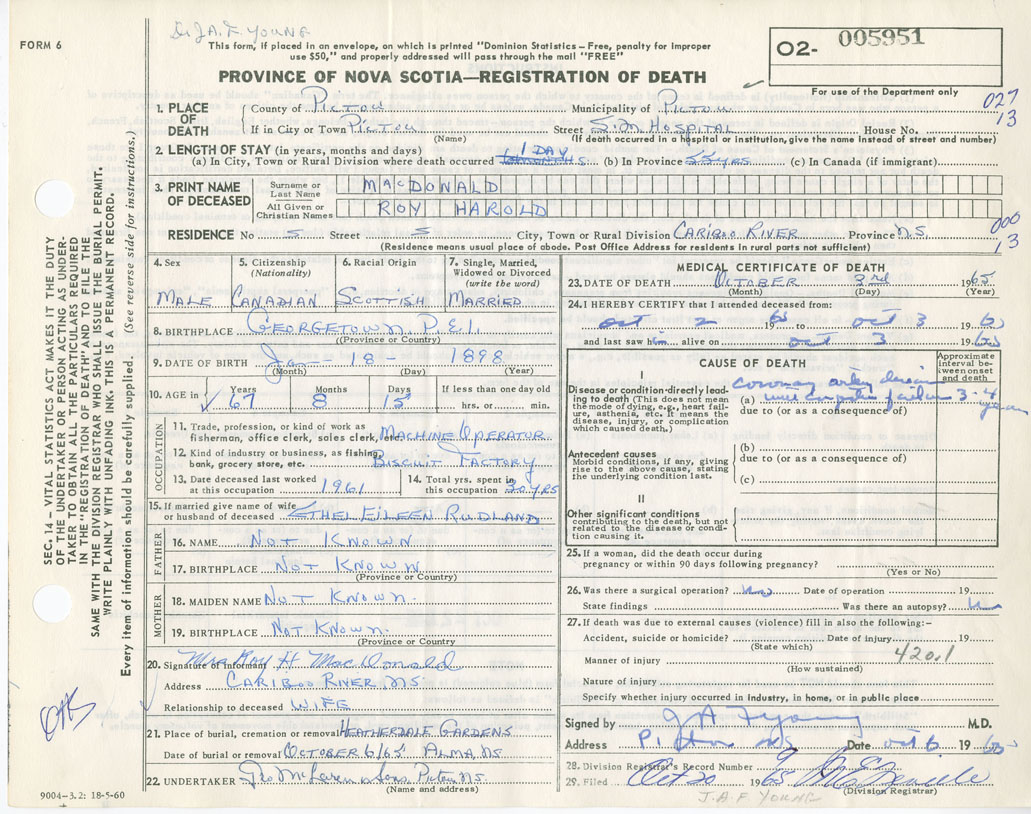 Dr J.A.F. YOUNG
FORM 6
This form, if placed in an envelope, on which is printed "Dominion Statistics – Free, penalty for improper
use $50," and properly addressed will pass through the mail "FREE"
O2- 005951
For use of the Department only
PROVINCE OF NOVA SCOTIA—REGISTRATION OF DEATH
027
13
1. PLACE OF DEATH
County of PICTOU Municipality of PICTOU
If in City or Town PICTOU Street S.M. HOSPITAL House No.
(Name) (If death occurred in a hospital or institution, give the name instead of street and number)
2. LENGTH OF STAY (in years, months and days)
(a) In City, Town or Rural Division where death occurred 1 DAY (b) In Province 55 YRS (c) In Canada (if immigrant)
3. PRINT NAME OF DECEASED
Surname or Last Name MACDONALD
All Given or Christian Names ROY HAROLD
RESIDENCE No S Street S City, Town or Rural Division CARIBOO RIVER Province N.S.
(Residence means usual place of abode. Post Office Address for residents in rural parts not sufficient)
000
13
4. Sex
MALE
5. Citizenship
(Nationality)
CANADIAN
6. Racial Origin
SCOTTISH
7. Single, Married, Widowed or Divorced
(write the word)
MARRIED
8. BIRTHPLACE GEORGETOWN, P.E.I.
(Province or Country)
9. DATE OF BIRTH Ja — 18 — 1898
(Month) (Day) (Year)
10. AGE in
Years Months Days If less than one day old
67 8 15 hrs. or min.
OCCUPATION
11. Trade, profession, or kind of work as
fisherman, office clerk, sales clerk, etc. MACHINE OPERATOR
12. Kind of industry or business, as fishing,
bank, grocery store, etc. BISCUIT FACTORY
13. Date deceased last worked
at this occupation 1961
14. Total yrs. spent in
this occupation 30 YRS
15. If married give name of wife
or husband of deceased ETHEL EILEEN RUDLAND
FATHER
16. NAME NOT KNOWN
17. BIRTHPLACE NOT KNOWN
(Province or Country)
MOTHER
18. MAIDEN NAME NOT KNOWN
19. BIRTHPLACE NOT KNOWN
(Province or Country)
20. Signature of Informant Mrs Roy H MacDonald
Address CARIBOO RIVER, NS
Relationship to deceased WIFE
21. Place of burial, cremation or removal HEATHERDALE GARDENS
Date of burial or removal OCTOBER 6/65 ALMA, NS
22. UNDERTAKER Geo McLaren & Sons Pictou NS
(Name and address)
MEDICAL CERTIFICATE OF DEATH
23. DATE OF DEATH OCTOBER 3rd 1965
(Month) (Day) (Year)
24. I HEREBY CERTIFY that I attended deceased from:
oct 2 1965 to oct 3 1965
and last saw him alive on oct 3 1965
CAUSE OF DEATH
Approximate interval between onset and death
I
Disease or condition directly leading to death (This does not mean
the mode of dying, e.g., heart failure, asthenia, etc. It means the
disease, injury, or complication
which caused death.)
coronary artery disease
(a) with congestive failure 3-4 years
due to (or as a consequence of)
Antecedent causes
Morbid conditions, if any, giving
rise to the above cause, stating
the underlying condition last.
(b)
due to (or as a consequence of)
(c)
II
Other significant conditions
contributing to the death, but not
related to the disease or condition causing it.
25. If a woman, did the death occur during
pregnancy or within 90 days following pregnancy?
(Yes or No)
26. Was there a surgical operation? no Date of operation 19
State findings Was there an autopsy? no
27. If death was due to external causes (violence) fill in also the following:–
Accident, suicide or homicide? Date of injury 19
(State which)
Manner of injury 420.1
(How sustained)
Nature of injury
Specify whether injury occurred in industry, in home, or in public place
Signed by JA F Young M.D.
Address Pictou NS Date oct 6 1965
28. Division Registrar's Record Number 9
29. Filed Oct 20 1965
(Division Registrar)
J.A.F YOUNG
SEC. 14 – VITAL STATISTICS ACT MAKES IT THE DUTY
OF THE UNDERTAKER OR PERSON ACTING AS UNDER-
TAKER TO OBTAIN ALL THE PARTICULARS REQUIRED
IN THE "REGISTRATION OF DEATH" AND TO FILE THE
SAME WITH THE DIVISION REGISTRAR WHO SHALL ISSUE THE BURIAL PERMIT.
WRITE PLAINLY WITH UNFADING INK, THIS IS A PERMANENT RECORD.
Every item of information should be carefully supplied. (See reverse side for instructions.)
9004-3.2: 18-5-60